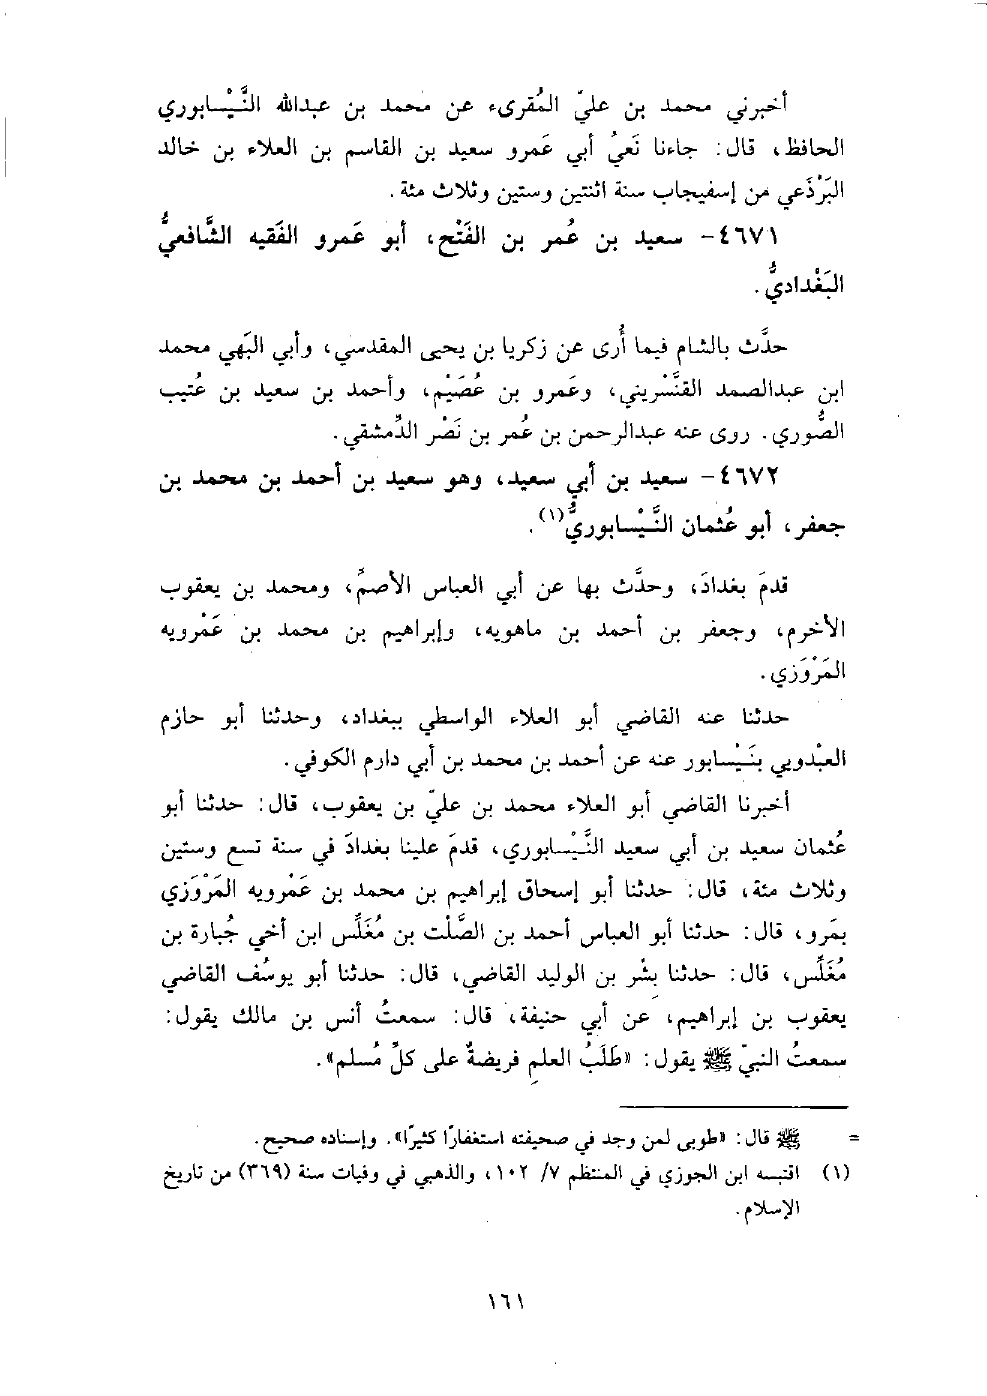 أخبرني محمد بن عليّ المُقرىء عن محمد بن عبدالله النَّيْسابوري
الحافظ، قال: جاءنا نَعيُ أبي عَمرو سعيد بن القاسم بن العلاء بن خالد
البَرْذَعي من إسفيجاب سنة اثنتين وستين وثلاث مئة.
٤٦٧١- سعيد بن عُمر بن الفَتْح، أبو عَمرو الفَقيه الشَّافعيُّ
البَغْداديُّ.
حدَّث بالشام فيما أُرى عن زكريا بن يحيى المقدسي، وأبي البَهي محمد
ابن عبدالصمد القنَّسْريني، وعَمرو بن عُصَيْم، وأحمد بن سعيد بن عُتيب
الصُّوري. روى عنه عبدالرحمن بن عُمر بن نَصْر الدِّمشقي.
٤٦٧٢- سعيد بن أبي سعيد، وهو سعيد بن أحمد بن محمد بن
جعفر، أبو عُثمان النَّيْسابوريُّ(١).
قدمَ بغدادَ، وحدَّث بها عن أبي العباس الأصمِّ، ومحمد بن يعقوب
الأخرم، وجعفر بن أحمد بن ماهويه، وإبراهيم بن محمد بن عَمْرويه
المَرْوَزي.
حدثنا عنه القاضي أبو العلاء الواسطي ببغداد، وحدثنا أبو حازم
العبْدويي بنَيْسابور عنه عن أحمد بن محمد بن أبي دارم الكوفي.
أخبرنا القاضي أبو العلاء محمد بن عليّ بن يعقوب، قال: حدثنا أبو
عُثمان سعيد بن أبي سعيد النَّيْسابوري، قدمَ علينا بغدادَ في سنة تسع وستين
وثلاث مئة، قال: حدثنا أبو إسحاق إبراهيم بن محمد بن عَمْرويه المَرْوَزي
بمَرو، قال: حدثنا أبو العباس أحمد بن الصَّلْت بن مُغَلِّس ابن أخي جُبارة بن
مُغَلِّس، قال: حدثنا بشْر بن الوليد القاضي، قال: حدثنا أبو يوسُف القاضي
يعقوب بن إبراهيم، عن أبي حنيفة، قال: سمعتُ أنس بن مالك يقول:
سمعتُ النبيّ ﷺ يقول: «طَلَبُ العلمِ فريضةٌ على كلِّ مُسلم».
= ﷺ قال: «طوبى لمن وجد في صحيفته استغفارًا كثيرًا». وإسناده صحيح.
(١) اقتبسه ابن الجوزي في المنتظم ٧/ ١٠٢، والذهبي في وفيات سنة (٣٦٩) من تاريخ
الإسلام.
١٦١